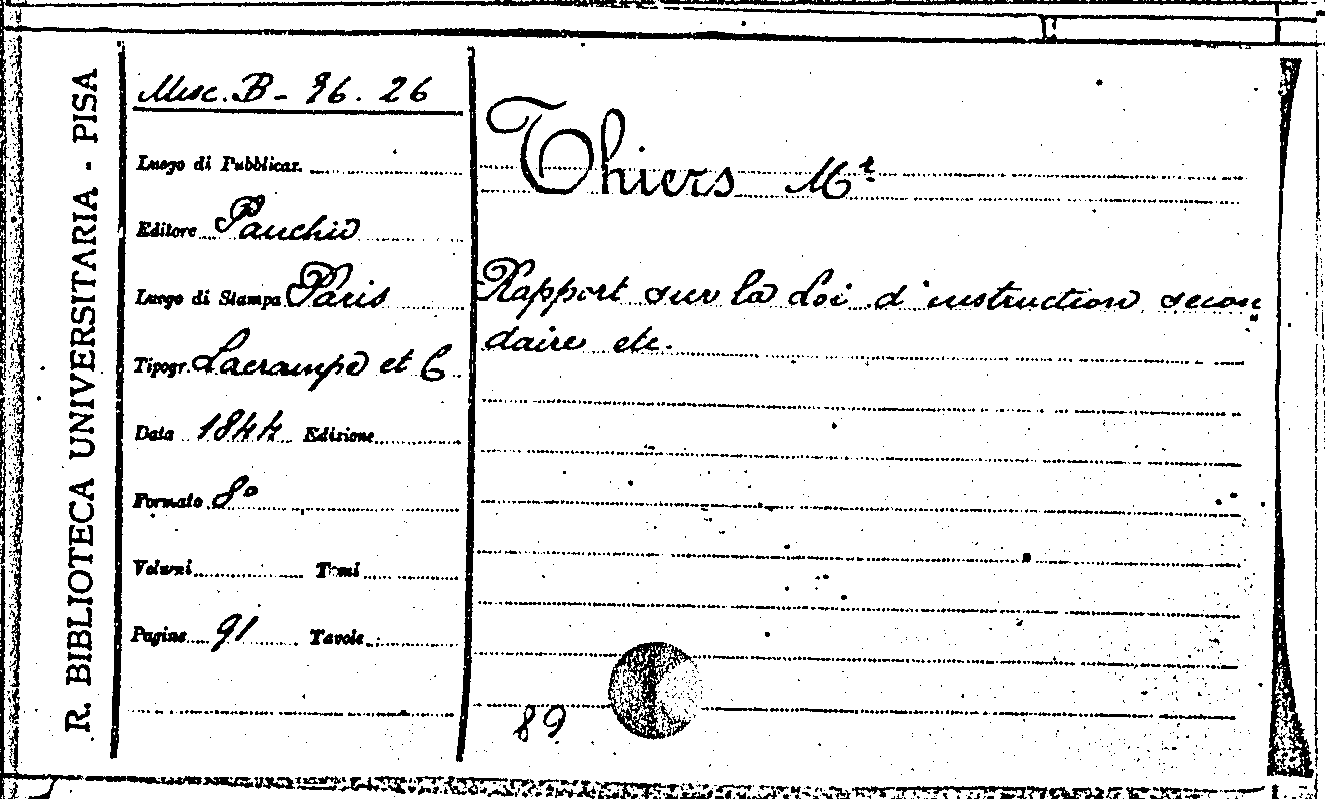 R. BIBLIOTECA UNIVERSITARIA - PISA
Misc. B - 96. 26
Luogo di Pubblicaz.
Editore Pauchio
Luogo di Stampa Paris
Tipogr. Lacrampe et C
Data 1844 Edizione
Formato 8º
Volumi Tomi
Pagine 91 Tavole
Thiers Mr.
Rapport sur la Loi d'instruction secon
daire etc.
89